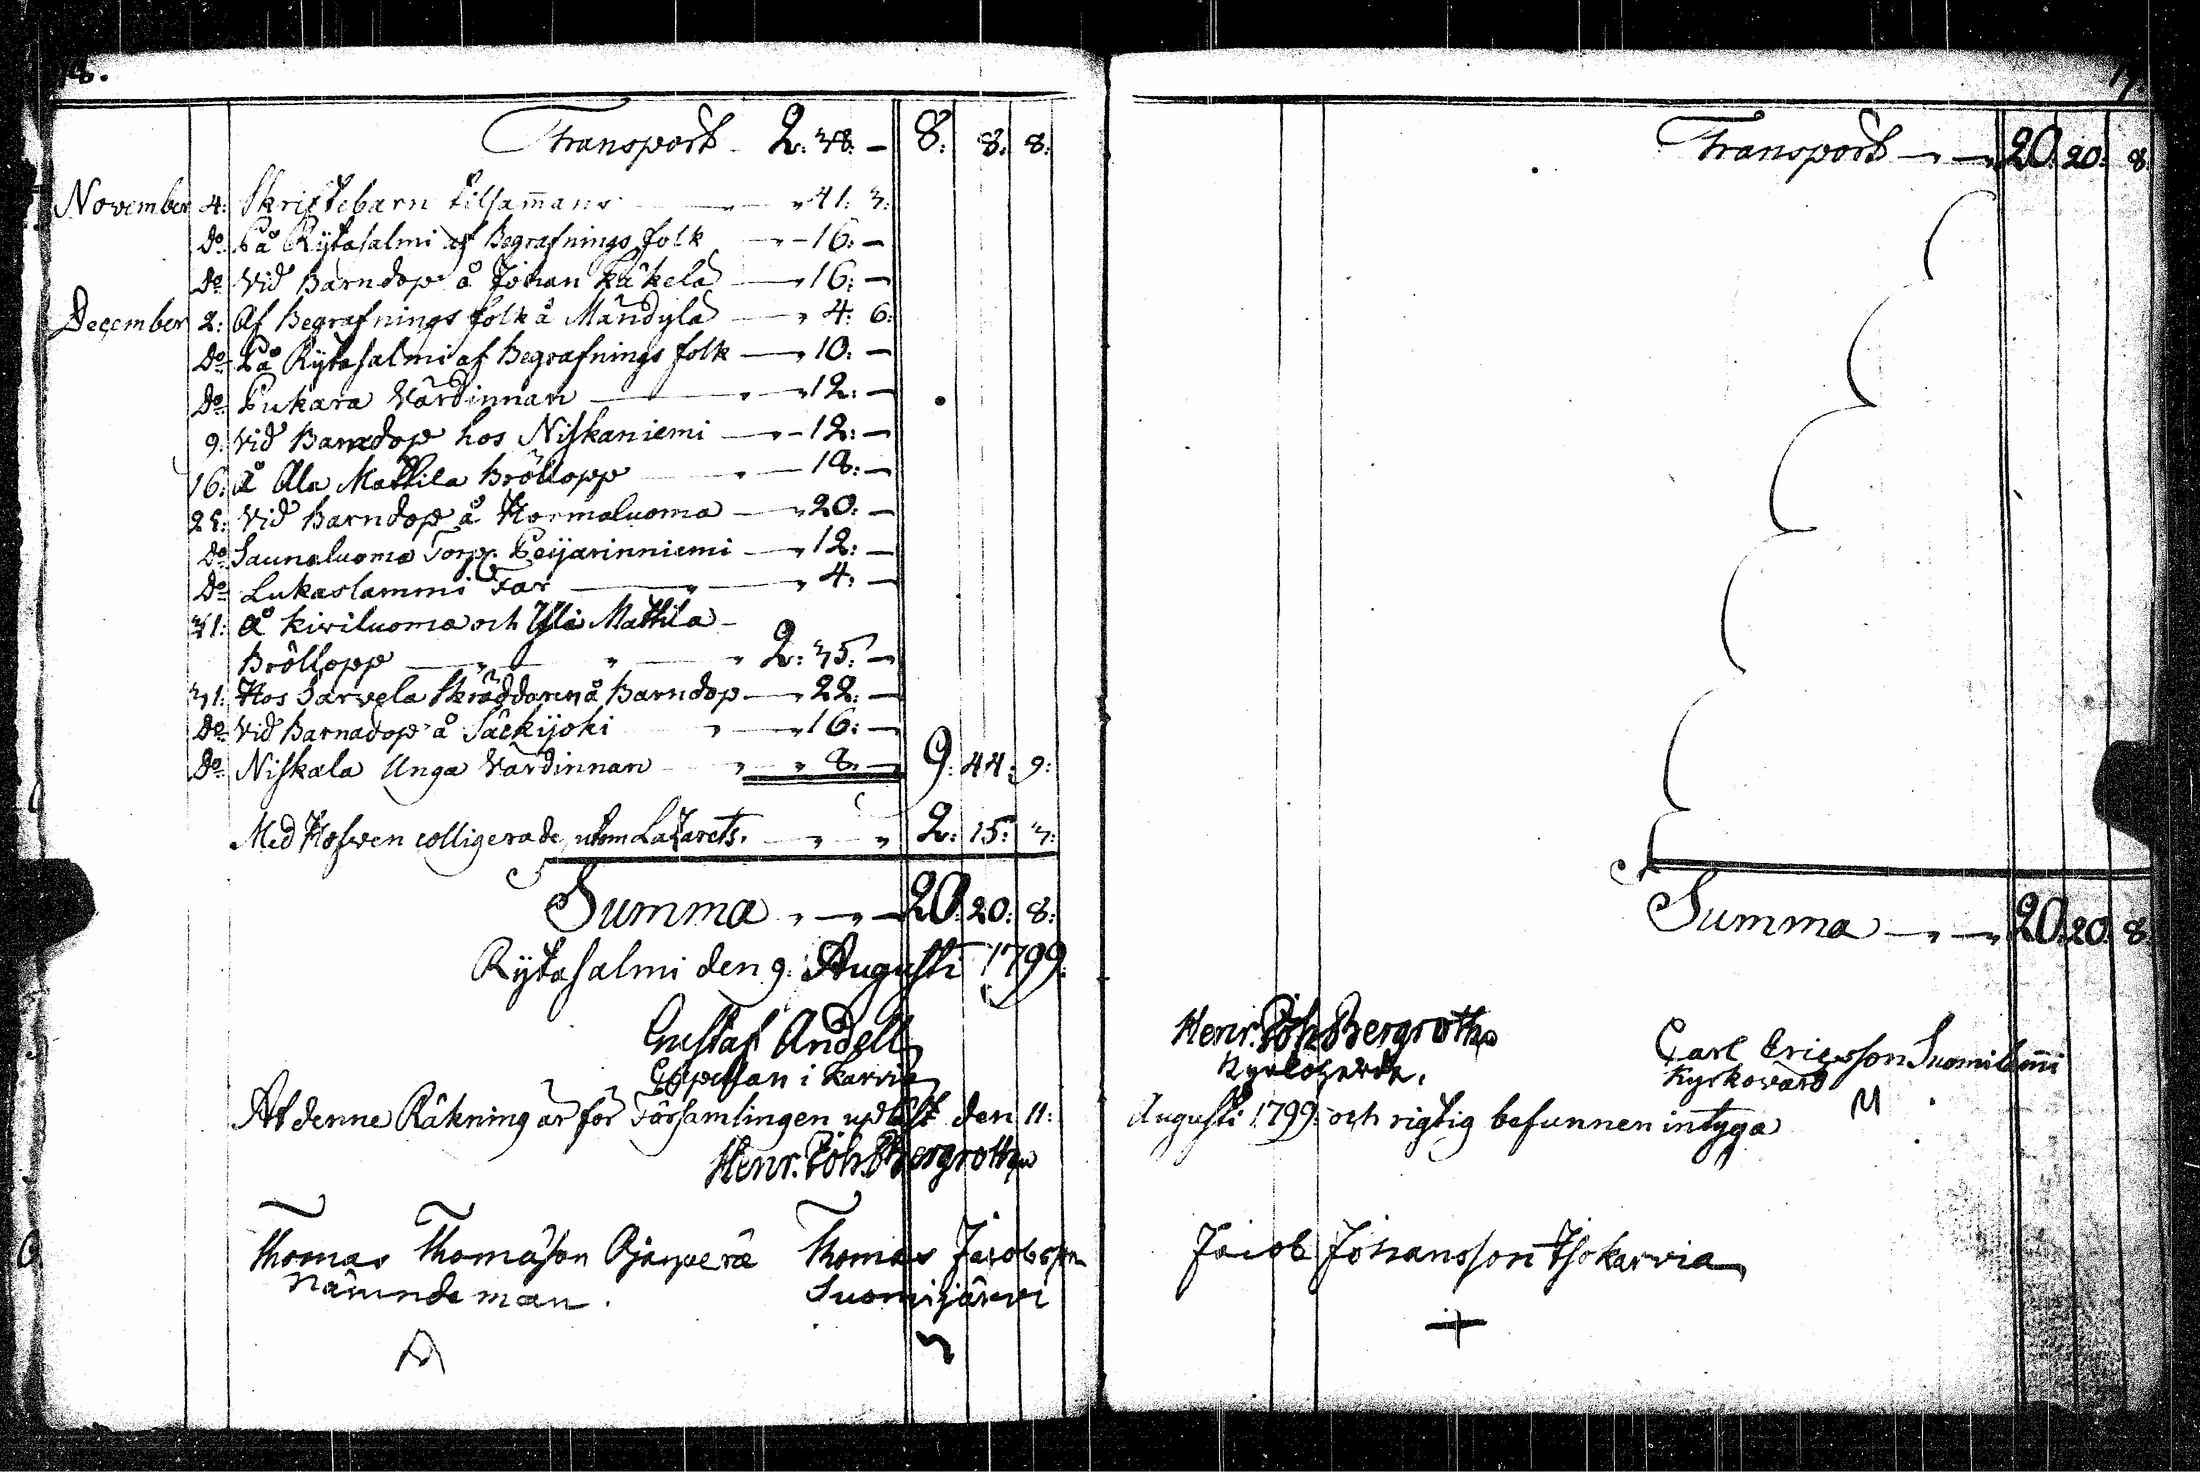 Transport 2: 38. — 8: 8: 8:
November 4: Skriftebarn tilsam̄ans 41: 3:
Do På Rytasalmi af Begrafnings folk 16: —
Do Vid Barndop å Johan Käkelä 16: —
December 2: Af Begrafnings folk å Mändylä 4: 6:
Do På Rytasalmi af Begrafnings folk 10: —
Do Pukara Värdinnan 12: —
9: Vid Barndop hos Niskaniemi 12: —
16: Å Ala Mattila Bröllopp 18: —
25: Vid Barndop å Hormaluoma 20: —
Do Saunaluoma Torp. Peijarinniemi 12: —
Do Lukaslammi Far 4: —
31: Å Kiviluoma och Ylä Mattila
Bröllopp 2: 35: —
31: Hos Sarvela Skräddaren å Barndop 22: —
Do Vid Barnadop å Säckijoki 16: —
Do Niskala Unga Värdinnan 8. — 9: 44: 9:
Med Hofwen colligerade, utom Lazarets. 2: 15: 3:
Summa 20: 20: 8:
Rytasalmi den 9: Augusti 1799.
Gustaf Andell
Cappellan i Karvia
At denne Räkning är för Församlingen upläst den 11:
Henr. Joh. Bergroth
Thomas Thomasson Ojanperä
Nämndeman.
Thomas Jacobsson
Suomijärvi
Transport 20: 20: 8
Summa 20: 20: 8
Henr. Joh. Bergroth
Kyrkoherde.
Carl Ericsson Suomilam̄i
Kyrkovärd
Augusti 1799: och rigtig befunnen intyga
Jacob Johansson Isokarvia